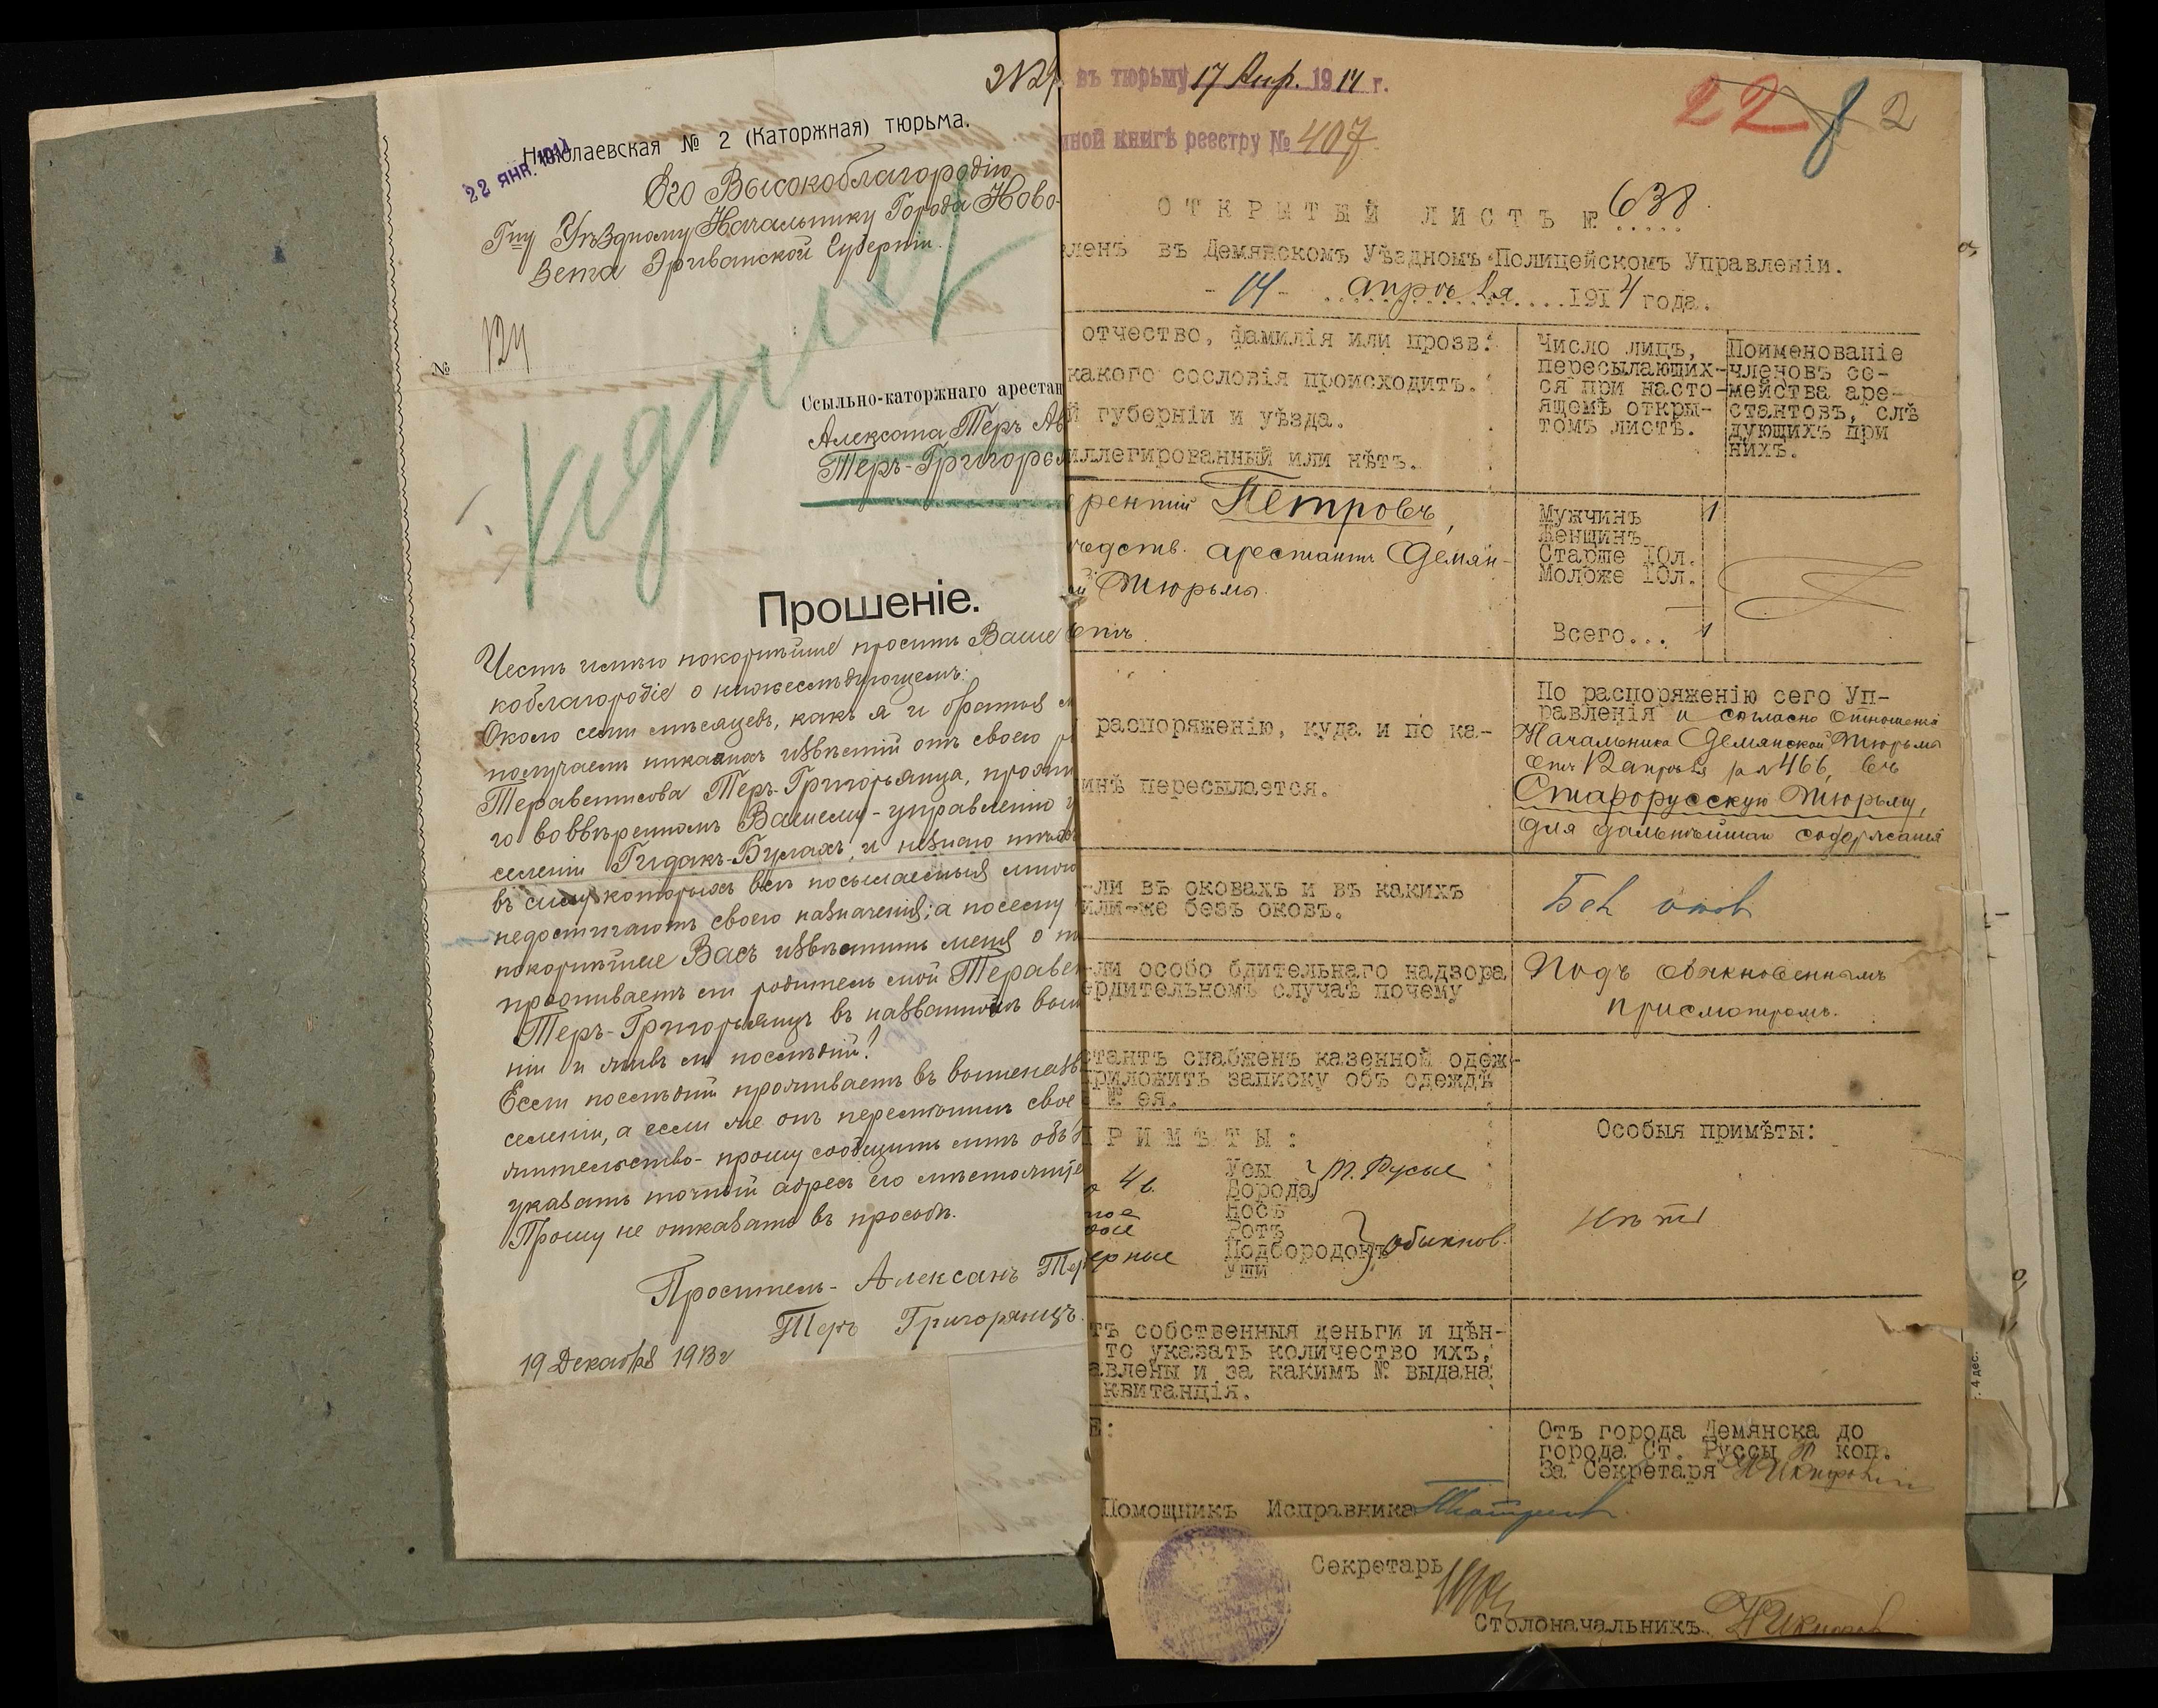 Николаевская № 2 (Каторжная) тюрьма.
22 ЯНВ. 1914
Его Высокоблагородію
Гпу Уѣздному Начальнику Города Ново-
Вета Эриванской Губерніи.
№ 124
Ссыльно-каторжнаго арестан
Алексана Теръ Ав
Теръ-Григорс
Прошеніе.
Честь имѣю покорнѣйше просить Ваше
коблагородіе о нижеслѣдующемъ:
Около семи мѣсяцевъ, какъ я и братья м
получаемъ никакихъ извѣстій отъ своего р
Тераветисова Теръ-Григорьянца, прожи
го во ввѣренномъ Вашему-управленію у
селеніи Гидакъ-Булахъ, и незнаю
въ силу которыхъ всѣ посылаемыя мною
недостигаютъ своего назначенія; а посему
покорнѣйше Васъ извѣстить меня о т
проживаетъ ли родитель мой Тераве
Теръ-Григорьянцъ въ названномъ выш
ніи и живъ ли послѣдній?
Если послѣдній проживаетъ въ вышеназв
селеніи, а если же онъ перемѣнилъ свое
жительство- прошу сообщить мнѣ объ э
указать точный адресъ его мѣстожите
Прошу не отказать въ просьбѣ.
Проситель- Алексанъ Тер
Теръ Григорянцъ.
19 Декабря 1913 г
въ тюрьму 17 Апр. 1914 г.
ной книгѣ реестру № 407
22 2
ОТКРЫТЫЙ ЛИСТЪ № 638.
ленъ въ Демянскомъ Уѣздномъ Полицейскомъ Управленіи.
- 14 - апрѣля 1914 года.
отчество, фамилія или прозв.
какого сословія происходитъ.
й губерніи и уѣзда.
иллегированный или нѣтъ.
Число лицъ,
пересылающих-
ся при насто-
ящемъ откры-
томъ листѣ.
Поименованіе
членовъ се-
мейства аре-
стантовъ, слѣ
дующихъ при
нихъ.
рентій Петровъ,
ѣдств. арестантъ Демян-
й Тюрьмы.
ѣтъ.
Мужчинъ 1
Женщинъ
Старше 10л.
Моложе 10л.
Всего... 1
распоряженію, куда и по ка-
инѣ пересылается.
По распоряженію сего Уп-
равленія и согласно отношенія
Начальника Демянской Тюрьмы
отъ 12 апрѣля за № 466, въ
Старорусскую Тюрьму,
для дальнѣйшаго содержанія
-ли въ оковахъ и въ какихъ
или-же безъ оковъ.
Без оков
-ли особо бдительнаго надзора
ердительномъ случаѣ почему
Подъ обыкновеннымъ
присмотромъ.
стантъ снабженъ казенной одеж-
риложить записку объ одеждѣ
№ ея.
РИМѢТЫ:
Особыя примѣты:
4 в.
ерные
Усы
Борода
Т. Русые
Носъ
Ротъ
Подбородокъ
Уши
обыкнов.
Нѣтъ
тъ собственныя деньги и цѣн-
то указать количество ихъ,
авлены и за какимъ № выдана
квитанція.
Е:
Отъ города Демянска до
города Ст. Руссы коп.
За Секретаря
Помощникъ Исправника
Секретарь
Столоначальникъ
г. 4 дес.